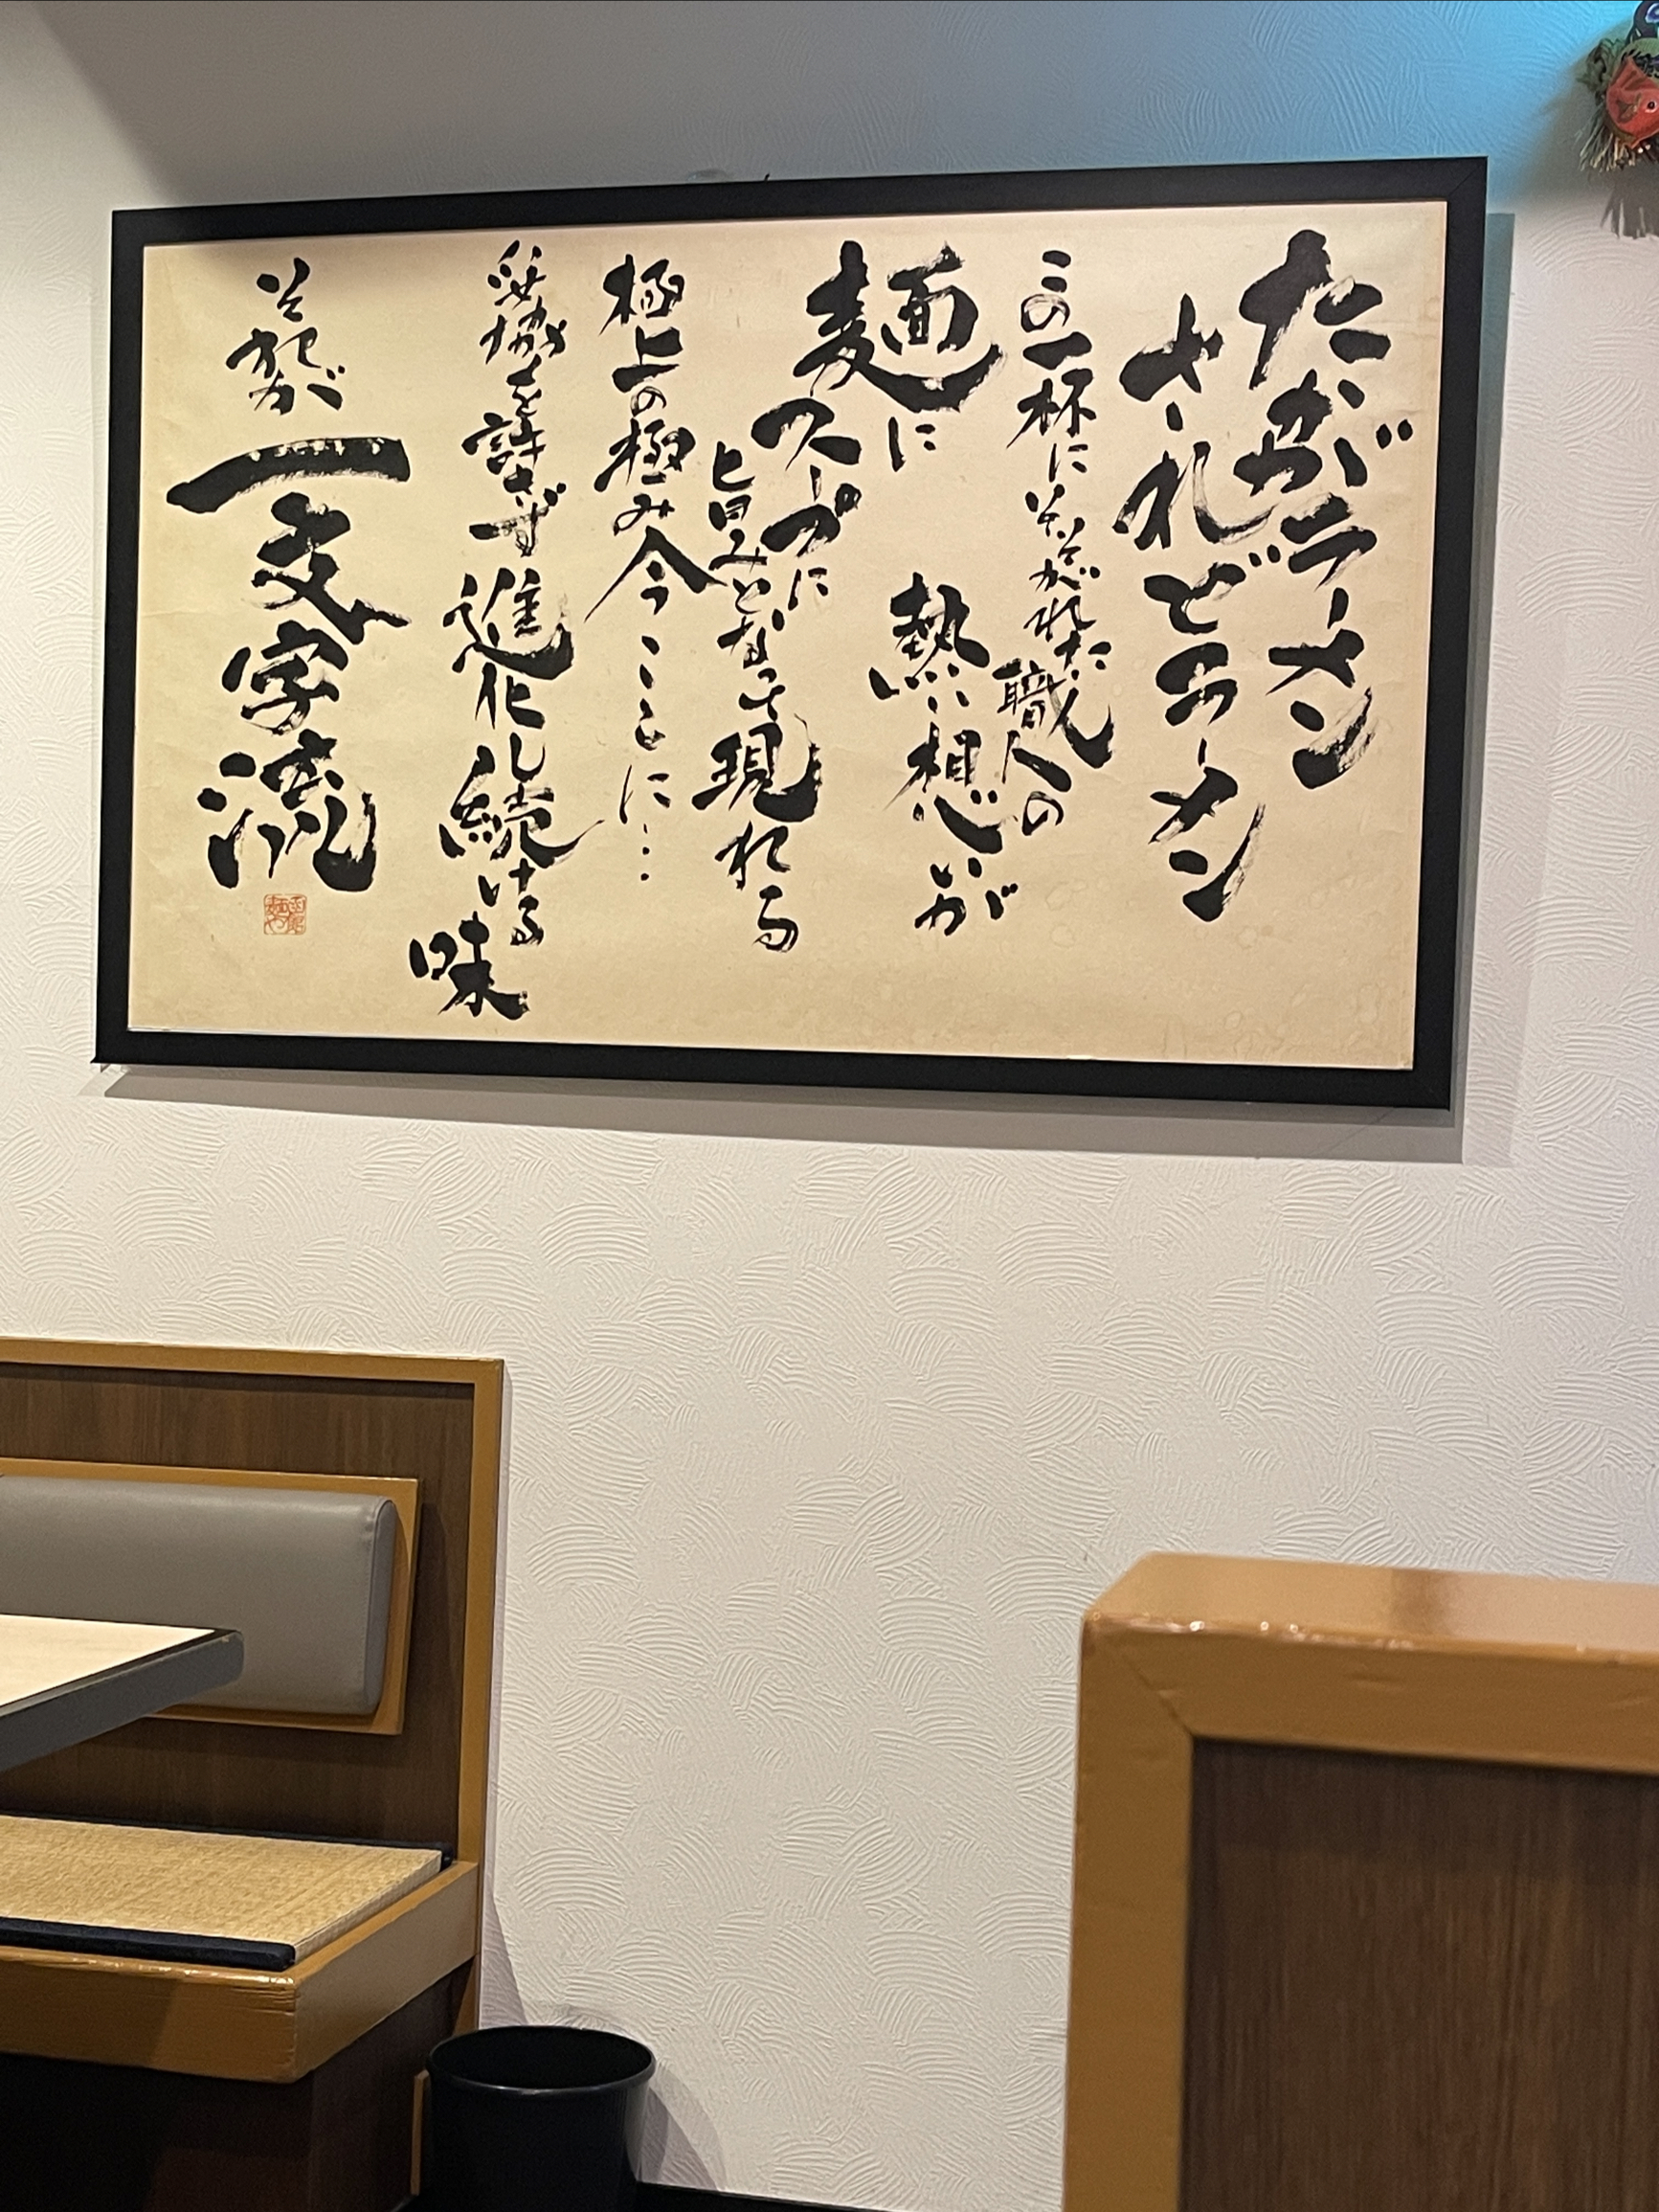 たかがラーメン
されどラーメン
この一杯にそそがれた職人の
熱い想いが
麺に
スープに
旨みとなって現れる
極上の極み今ここに…
妥協を許さず進化し続ける味
それが
一文字流